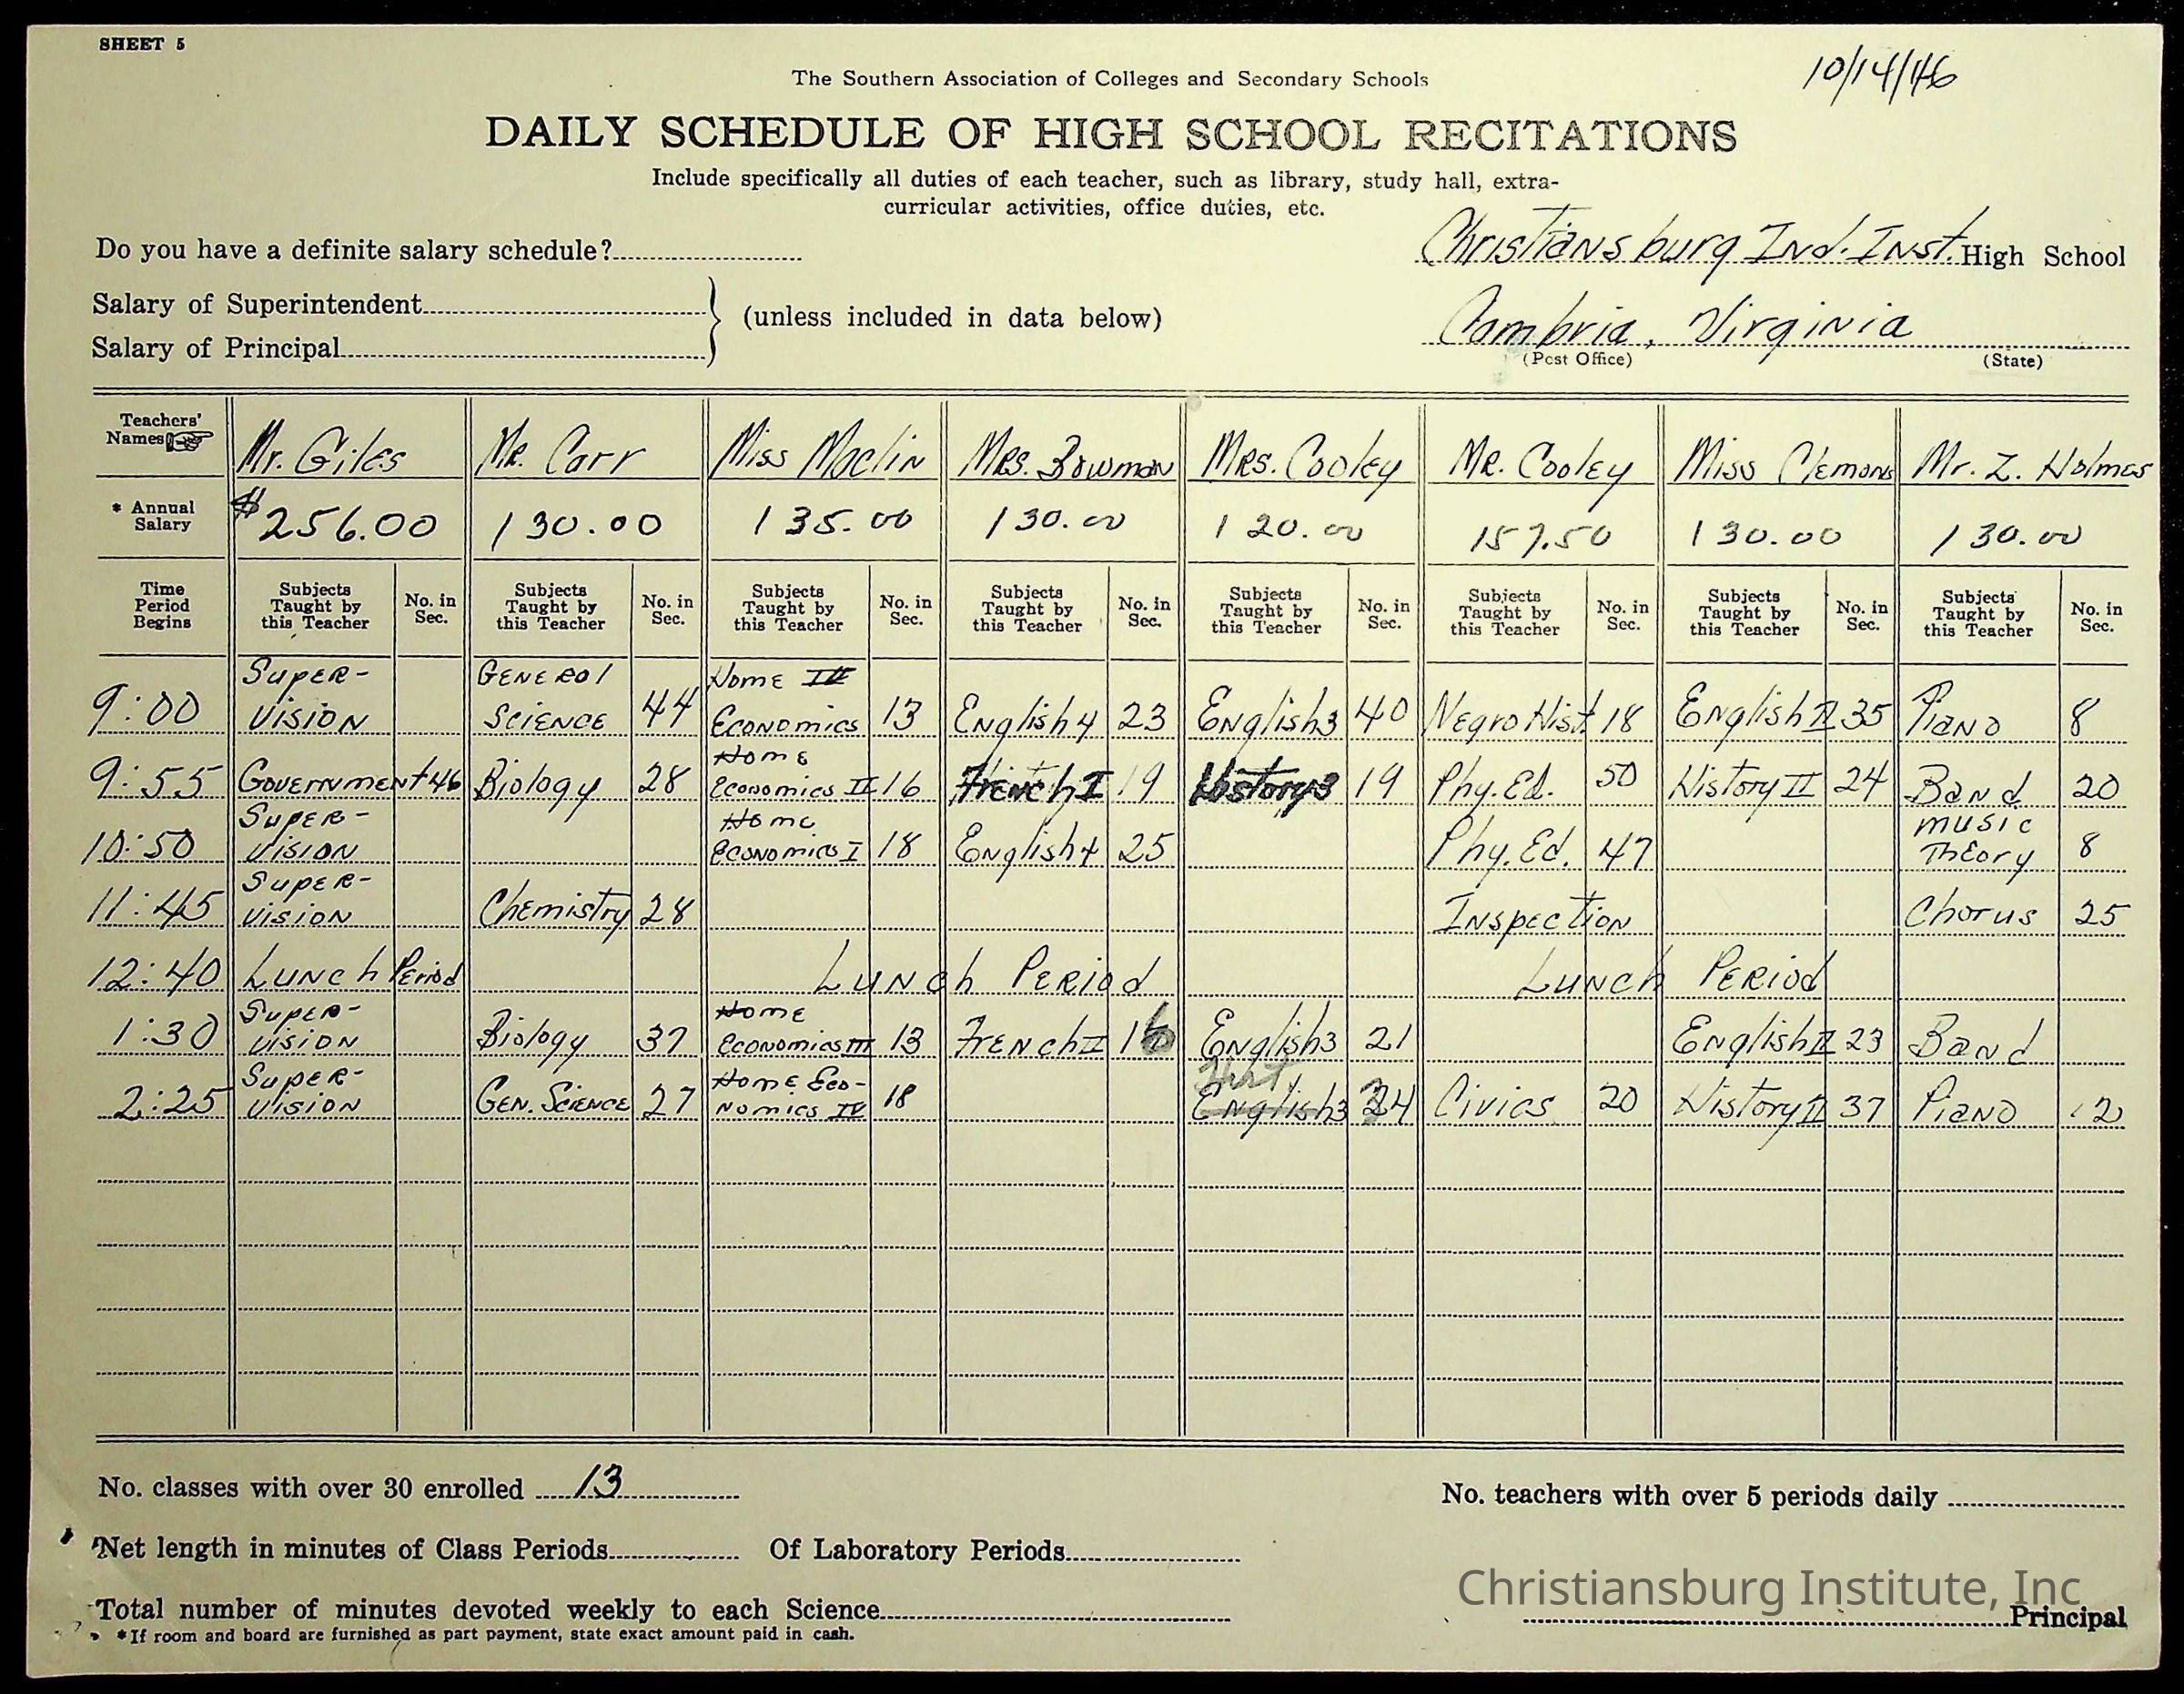 SHEET 5
10/14/46
The Southern Association of Colleges and Secondary Schools
DAILY SCHEDULE OF HIGH SCHOOL RECITATIONS
Include specifically all duties of each teacher, such as library, study hall, extra-
curricular activities, office duties, etc.
Do you have a definite salary schedule?
Christiansburg Ind. Inst. High School
Salary of Superintendent
(unless included in data below)
Salary of Principal
Cambria, Virginia
(Post Office) (State)
Teachers' Names Mr. Giles Mr. Carr Miss Maclin Mrs. Bowman Mrs. Cooley Mr. Cooley Miss Clemons Mr. Z. Holmes
* Annual Salary $256.00 130.00 135.00 130.00 120.00 157.50 130.00 130.00
Time Period Begins Subjects Taught by this Teacher No. in Sec. Subjects Taught by this Teacher No. in Sec. Subjects Taught by this Teacher No. in Sec. Subjects Taught by this Teacher No. in Sec. Subjects Taught by this Teacher No. in Sec. Subjects Taught by this Teacher No. in Sec. Subjects Taught by this Teacher No. in Sec. Subjects Taught by this Teacher No. in Sec.
9:00 Super-vision General Science 44 Home Economics 13 English 4 23 English 3 40 Negro Hist. 18 English II 35 Piano 8
9:55 Government 46 Biology 28 Home Economics II 16 French I 19 History 3 19 Phy. Ed. 50 History II 24 Band 20
10:50 Super-vision Home Economics I 18 English 4 25 Phy. Ed. 47 Music Theory 8
11:45 Super-vision Chemistry 28 Inspection Chorus 25
12:40 Lunch Period Lunch Period Lunch Period
1:30 Super-vision Biology 37 Home Economics III 13 French II 16 English 3 21 English II 23 Band
2:25 Super-vision Gen. Science 27 Home Eco-nomics IV 18 Hist English 3 34 Civics 20 History II 37 Piano 12
No. classes with over 30 enrolled 13
No. teachers with over 5 periods daily
Net length in minutes of Class Periods Of Laboratory Periods
Christiansburg Institute, Inc
Total number of minutes devoted weekly to each Science
Principal
*If room and board are furnished as part payment, state exact amount paid in cash.